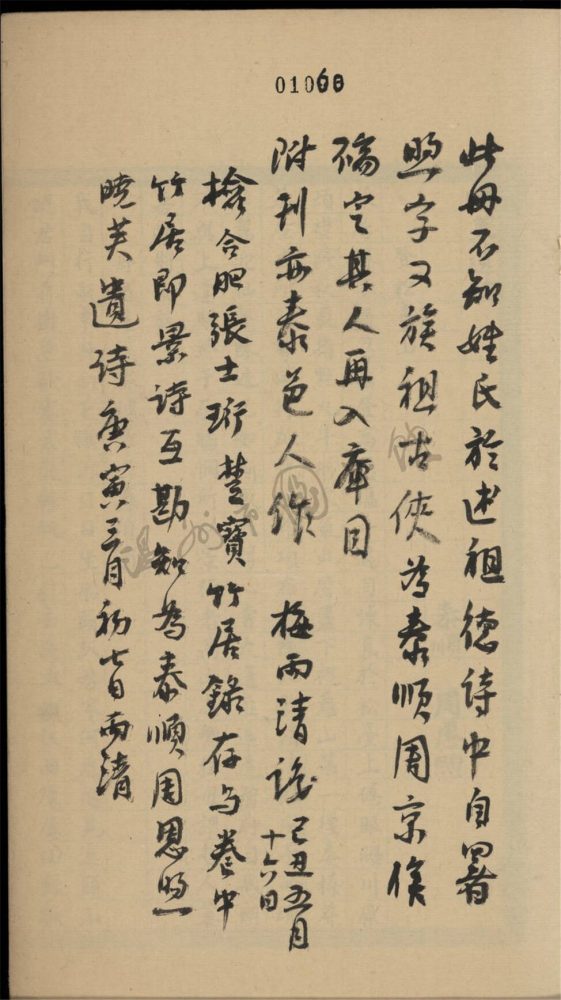 01068
此册不知姓氏於述祖德詩中自署
煦字又族祖古俠為泰順周京俟
確定其人再入庫目
附刊亦泰邑人作 梅雨清識己丑五月
十六日
檢合肥張士珩楚寶竹居錄存與卷中
竹居即景詩互勘知為泰順周恩煦
曉芙遺詩庚寅三月初七日雨清